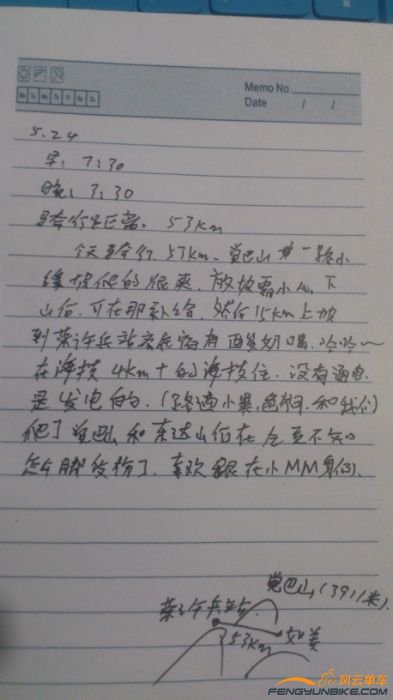 Memo No.
Date / /
5.24
早: 7:30
晚: 3:30
骑行距离: 53km
今天骑行53km、觉巴山 一路小
缓坡爬的很爽.放坡需小心.下
山后.可在那补给.然后15km上坡
到荣许兵站 有酥油奶喝.哈哈~
在海拔4km+的海拔住.没有通电
是发电的.(路遇小 和我们)
爬了觉巴山和东达山 不知
怎么脚受伤了.喜欢跟在小MM身后.
觉巴山(3911米)
荣许兵站
53km
如美
风云单车
FENGYUNBIKE.COM